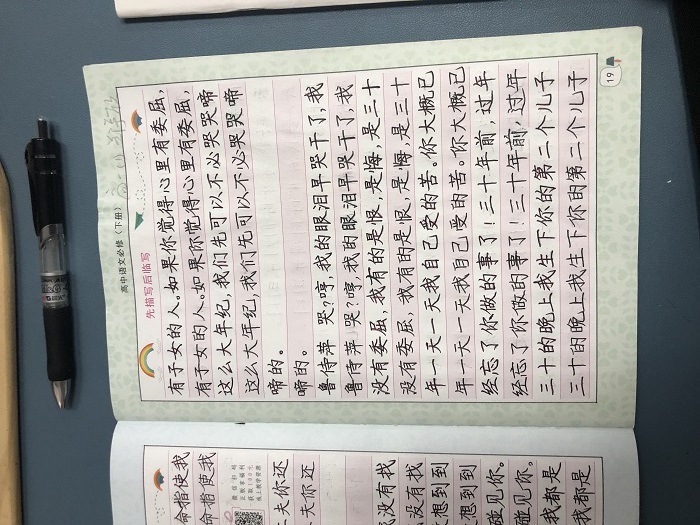 高中语文必修（下册）
先描写后临写
有子女的人。如果你觉得心里有委屈，
有子女的人。如果你觉得心里有委屈，
这么大年纪，我们先可以不必哭哭啼
这么大年纪，我们先可以不必哭哭啼
啼的。
啼的。
鲁侍萍 哭？哼，我的眼泪早哭干了，我
鲁侍萍 哭？哼，我的眼泪早哭干了，我
没有委屈，我有的是恨，是悔，是三十
没有委屈，我有的是恨，是悔，是三十
年一天一天我自己受的苦。你大概已
年一天一天我自己受的苦。你大概已
经忘了你做的事了！三十年前，过年
经忘了你做的事了！三十年前，过年
三十的晚上我生下你的第二个儿子
三十的晚上我生下你的第二个儿子
19
命指使我
命指使我
夫你还
夫你还
没有找
没有找
想到到
想到到
碰见你。
碰见你。
我都是
我都是